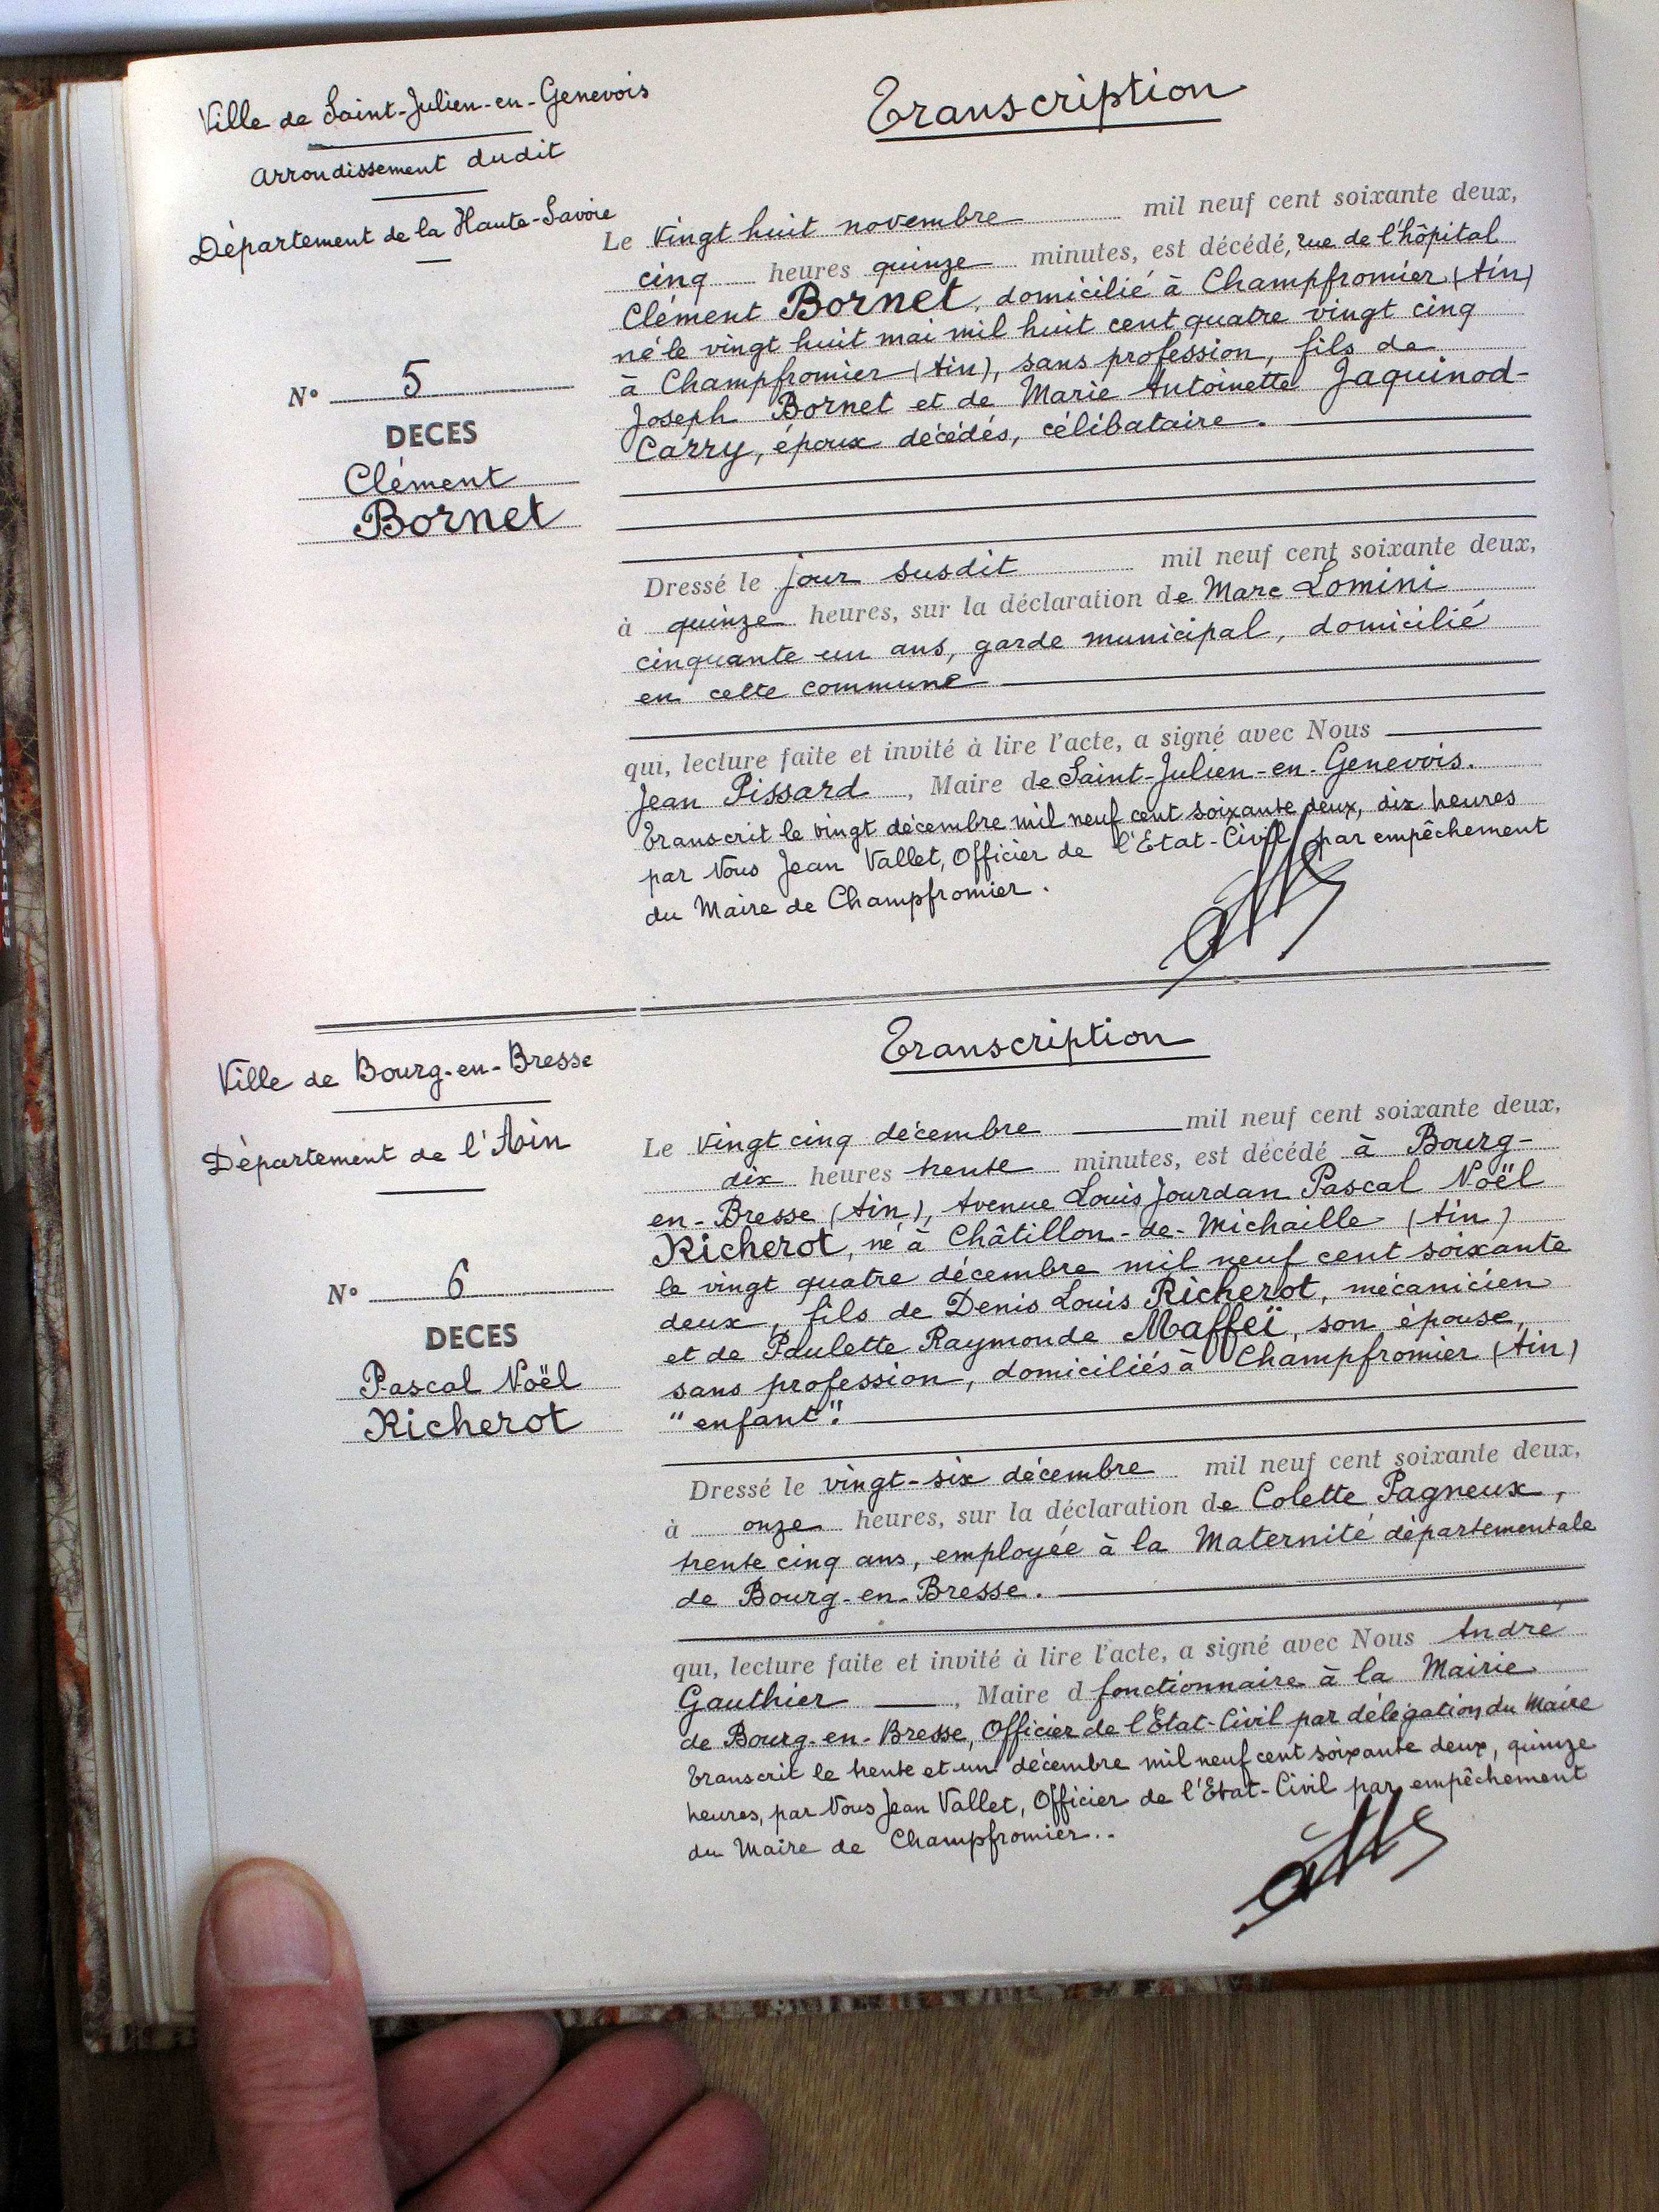 Ville de Saint-Julien-en-Genevois
Arrondissement dudit
Département de la Haute-Savoie
N° 5
DECES
Clément
Bornet
Transcription
Le vingt huit novembre mil neuf cent soixante deux,
cinq heures quinze minutes, est décédé, rue de l'hôpital
Clément Bornet, domicilié à Champfromier (Ain)
né le vingt huit mai mil huit cent quatre vingt cinq
à Champfromier (Ain), sans profession, fils de
Joseph Bornet et de Marie Antoinette Jaquinod-
Carry, époux décédés, célibataire.
Dressé le jour susdit mil neuf cent soixante deux,
à quinze heures, sur la déclaration de Marc Lomini
cinquante un ans, garde municipal, domicilié
en cette commune
qui, lecture faite et invité à lire l'acte, a signé avec Nous
Jean Pissard, Maire de Saint-Julien-en-Genevois.
Transcrit le vingt décembre mil neuf cent soixante deux, dix heures
par Nous Jean Vallet, Officier de l'Etat-Civil par empêchement
du Maire de Champfromier.
Ville de Bourg-en-Bresse
Département de l'Ain
N° 6
DECES
Pascal Noël
Richerot
Transcription
Le vingt cinq décembre mil neuf cent soixante deux,
dix heures trente minutes, est décédé à Bourg-
en-Bresse (Ain), Avenue Louis Jourdan Pascal Noël
Richerot, né à Châtillon-de-Michaille (Ain)
le vingt quatre décembre mil neuf cent soixante
deux, fils de Denis Louis Richerot, mécanicien
et de Paulette Raymonde Maffeï, son épouse,
sans profession, domiciliés à Champfromier (Ain)
"enfant".
Dressé le vingt-six décembre mil neuf cent soixante deux,
à onze heures, sur la déclaration de Colette Pagneux,
trente cinq ans, employée à la Maternité départementale
de Bourg-en-Bresse.
qui, lecture faite et invité à lire l'acte, a signé avec Nous André
Gauthier, Maire d fonctionnaire à la Mairie
de Bourg-en-Bresse, Officier de l'Etat-Civil par délégation du Maire
Transcrit le trente et un décembre mil neuf cent soixante deux, quinze
heures, par Nous Jean Vallet, Officier de l'Etat-Civil par empêchement
du Maire de Champfromier..